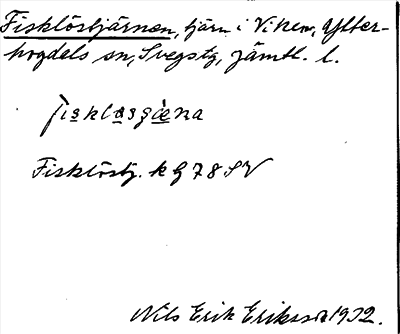 Fisklöstjärnen, tjärn i Viken, Ytter-
hogdels sn, Svegs tg, Jämtl. l.
fisklasgœna
Fisklöstj. k G 78 SV
Nils Erik Eriksson 1932.